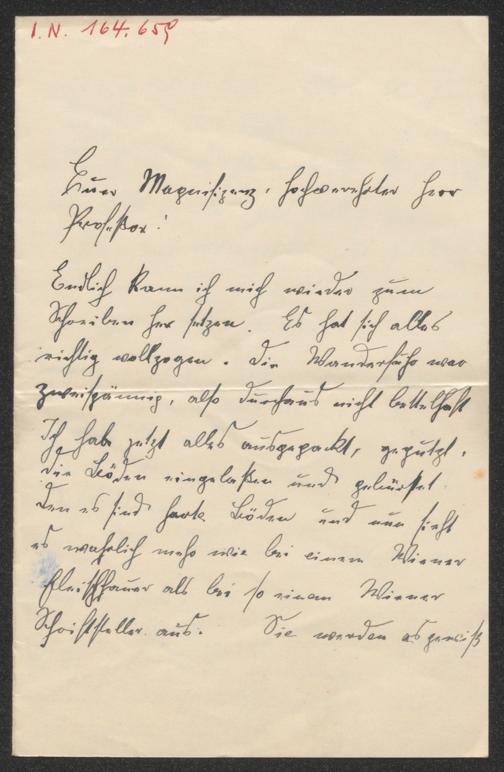 I.N. 164.659
Euer Magnifizenz, hochverehrter Herr
Professor!
Endlich kann ich mich wieder zum
Schreiben her setzen. Es hat sich alles
richtig vollzogen. Die Wanderfuhr war
zweispännig, also durchaus nicht bettelhaft
Ich habe jetzt alles ausgepackt, geputzt,
die Böden eingelaßen und gebürstet.
Den es sind harte Böden und nun sieht
es wahrlich mehr wie bei einem Wiener
Fleischhauer als bei so einem Wiener
Schriftsteller aus. Sie werden es gewiß